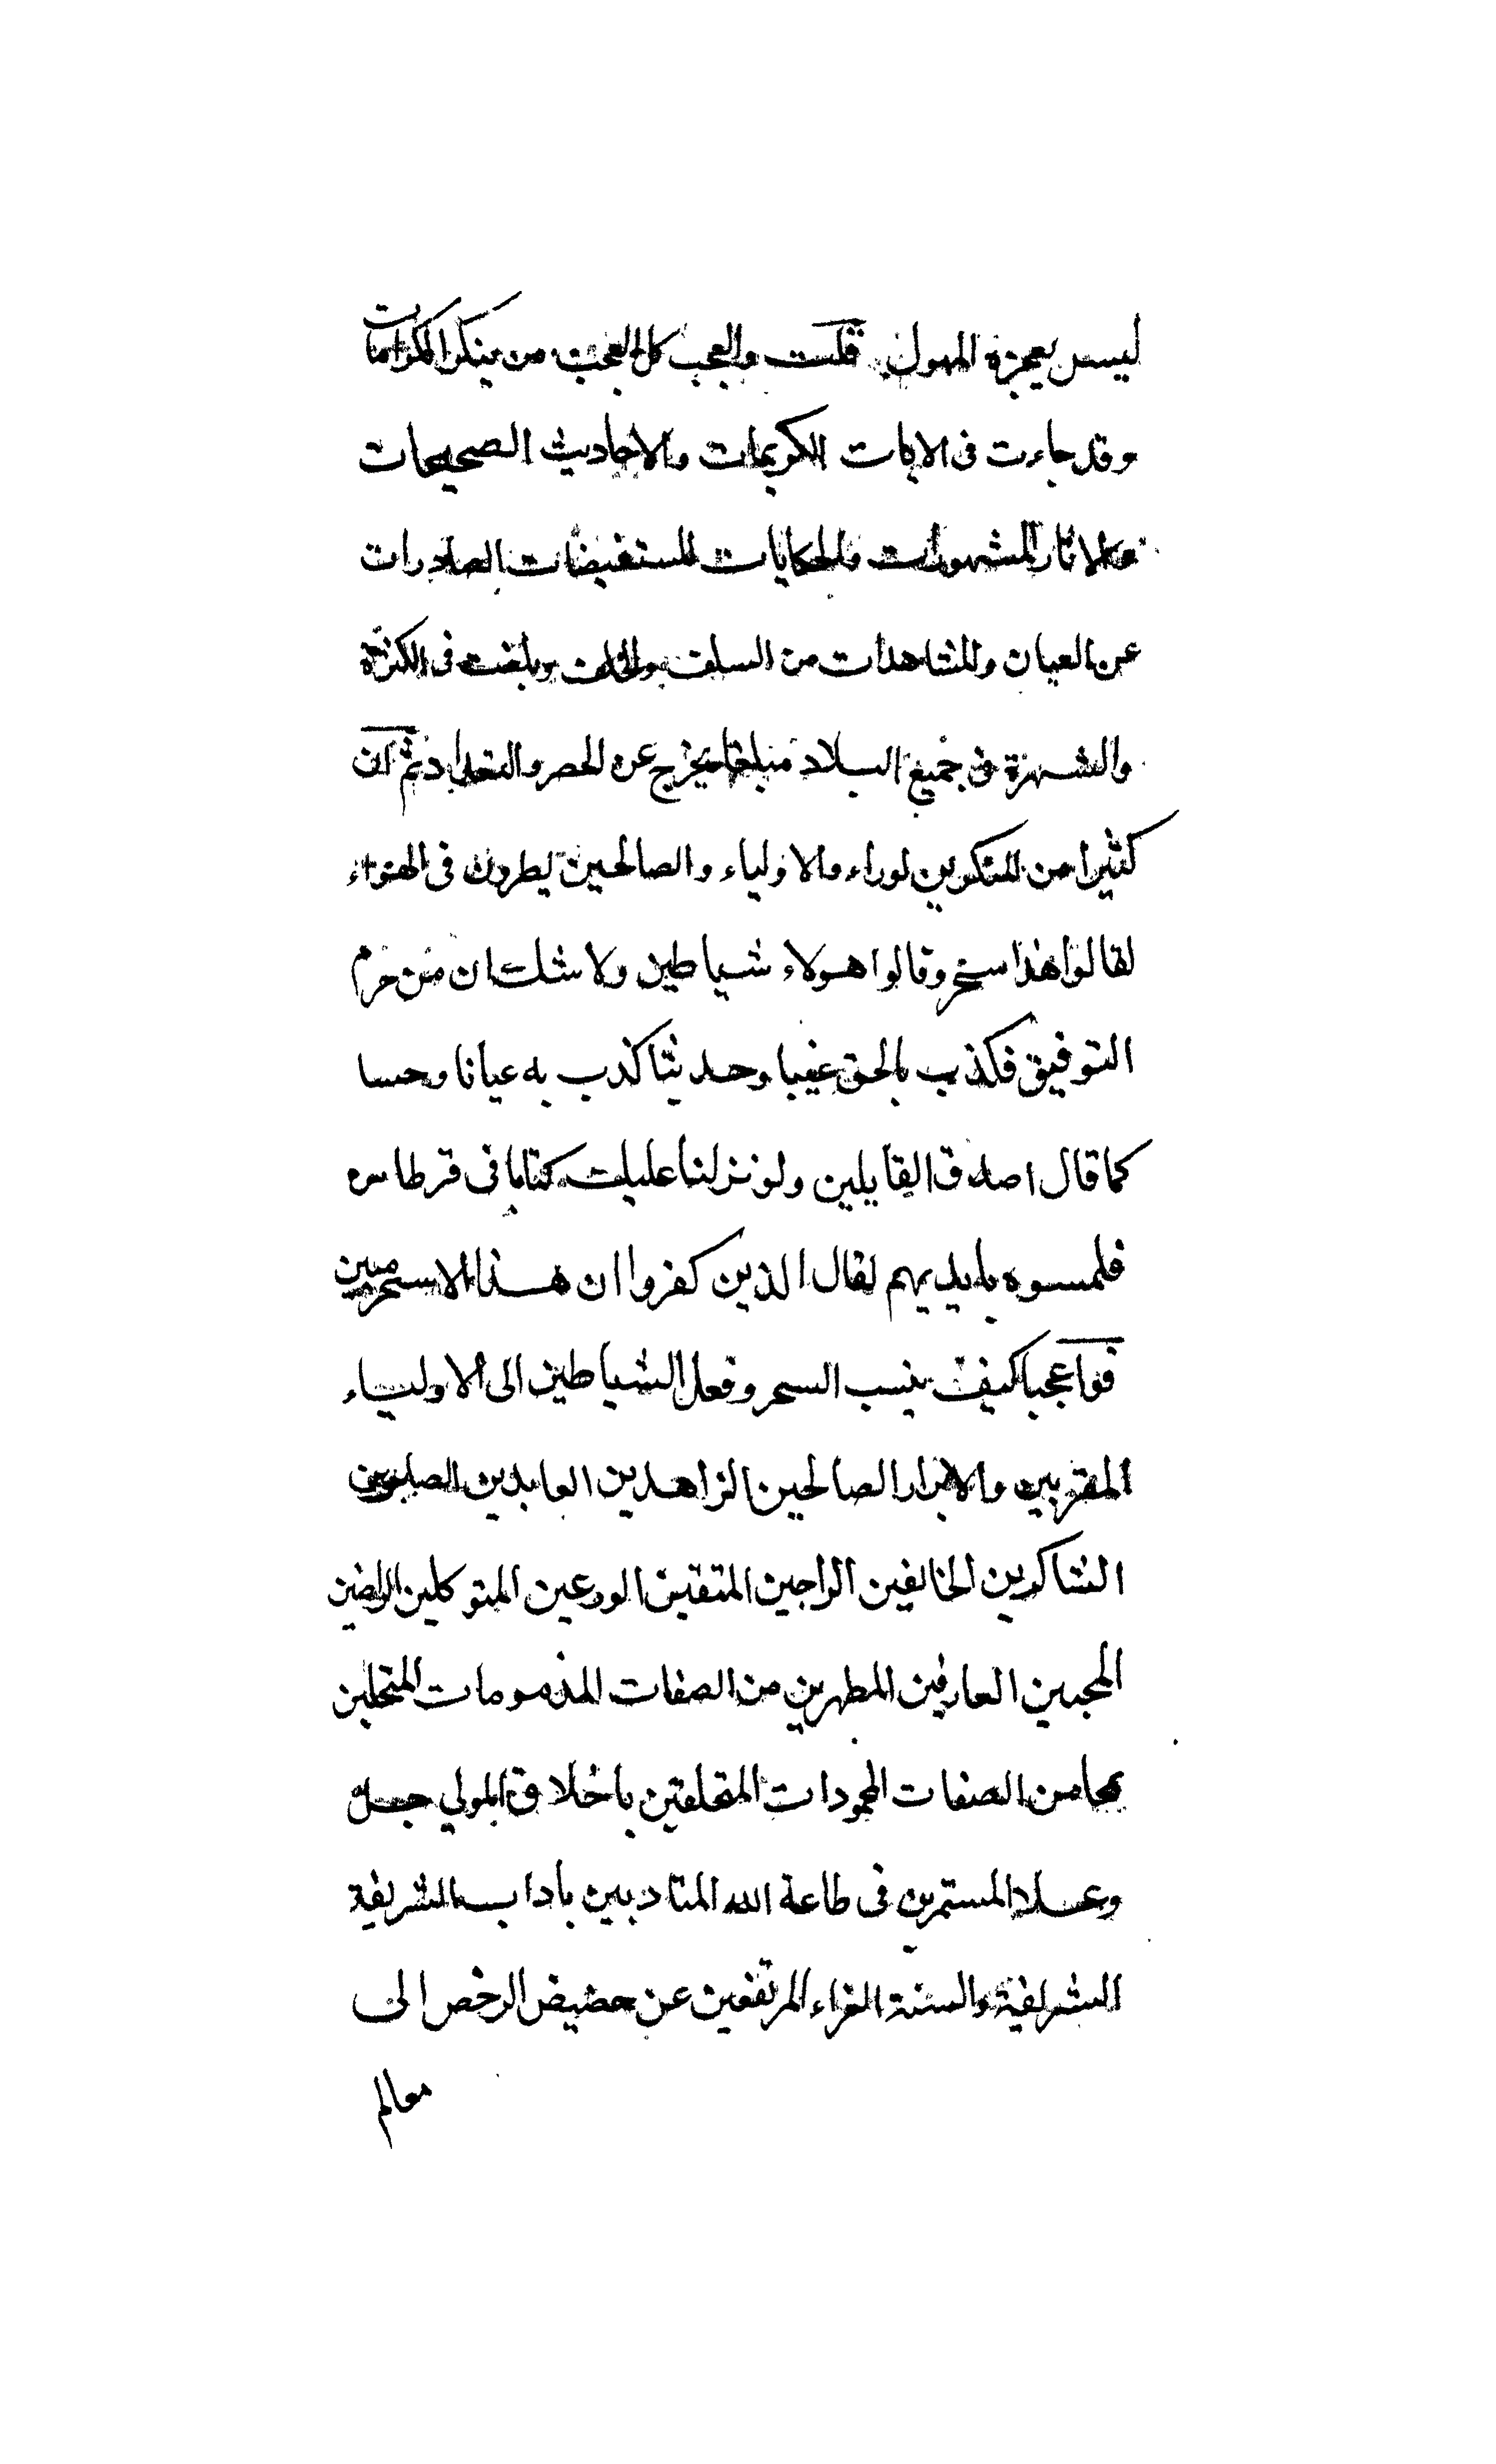 ليس يعجزه المهول قلت والعجب كل العجب من ينكر الكرامات
وقد جاءت فى الايات الكريمات والاحاديث الصحيحات
والاثار المشهورات والحكايات المستفيضات الصادرات
عن العيان والمشاهدات من السلف والخلف وبلغت فى الكثرة
والشهرة فى جميع البلاد مبلغا يخرج عن الحصر والتعداد ثم ان
كثيرا من المنكرين لوراء والاولياء والصالحين يطيرون فى الهواء
لقالوا هذا سحر وقالوا هولاء شياطين ولا شك ان من حرم
التوفيق فكذب بالحق غيبا وحدثا كذب به عيانا وحسا
كما قال اصدق القايلين ولو نزلنا عليك كتابا فى قرطاس
فلمسوه بايديهم لقال الذين كفروا ان هذا الا سحر مبين
فواعجبا كيف ينسب السحر وفعل الشياطين الى الاولياء
المقربين والابرار الصالحين الزاهدين العابدين الصابرين
الشاكرين الخايفين الراجين المتقين الورعين المتوكلين الراضين
المحبين العارفين المطهرين من الصفات المذمومات المتحلين
بمحاسن الصفات المحمودات المتخلقين باخلاق المولي جل
وعلا المستمرين فى طاعة الله المتادبين باداب الشريفة
الشريفة والسنة الغراء المرتفعين عن حضيض الرخص الى
معالم